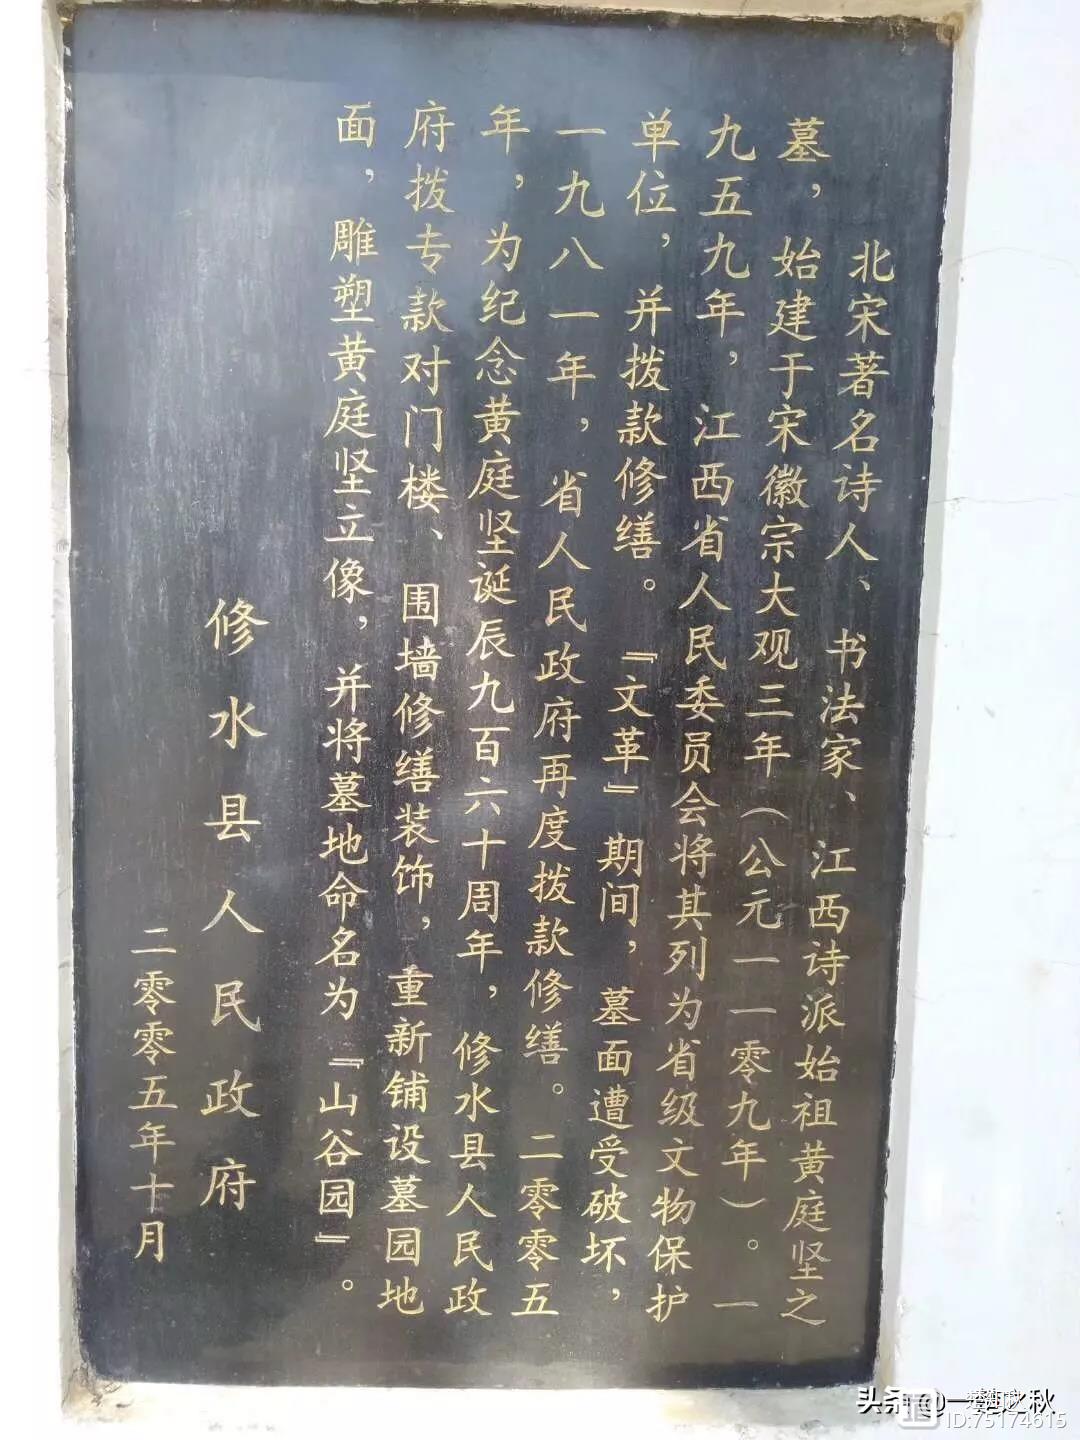 北宋著名诗人、书法家、江西诗派始祖黄庭坚之
墓，始建于宋徽宗大观三年（公元一一零九年）。一
九五九年，江西省人民委员会将其列为省级文物保护
单位，并拨款修缮。『文革』期间，墓面遭受破坏，
一九八一年，省人民政府再度拨款修缮。二零零五
年，为纪念黄庭坚诞辰九百六十周年，修水县人民政
府拨专款对门楼、围墙修缮装饰，重新铺设墓园地
面，雕塑黄庭坚立像，并将墓地命名为『山谷园』。
修水县人民政府
二零零五年十月
头条@一
之秋
ID:75174615